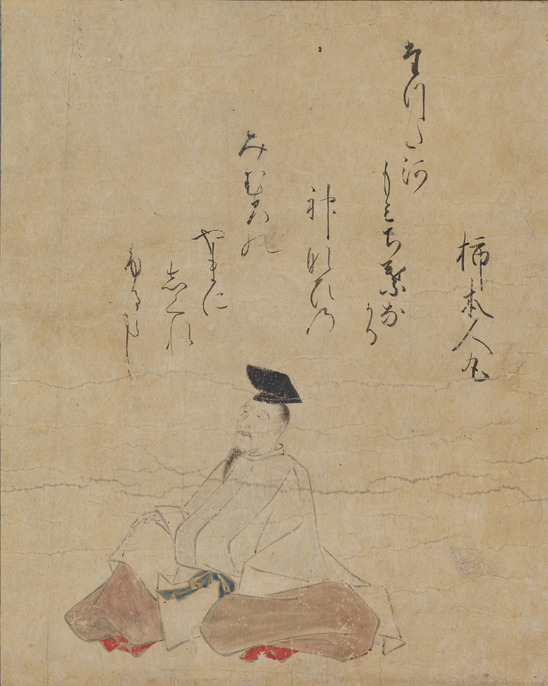 柿本人丸
たつた河
もみち葉なかる
神なひの
みむろの
やまに
しくれ
ふるらし